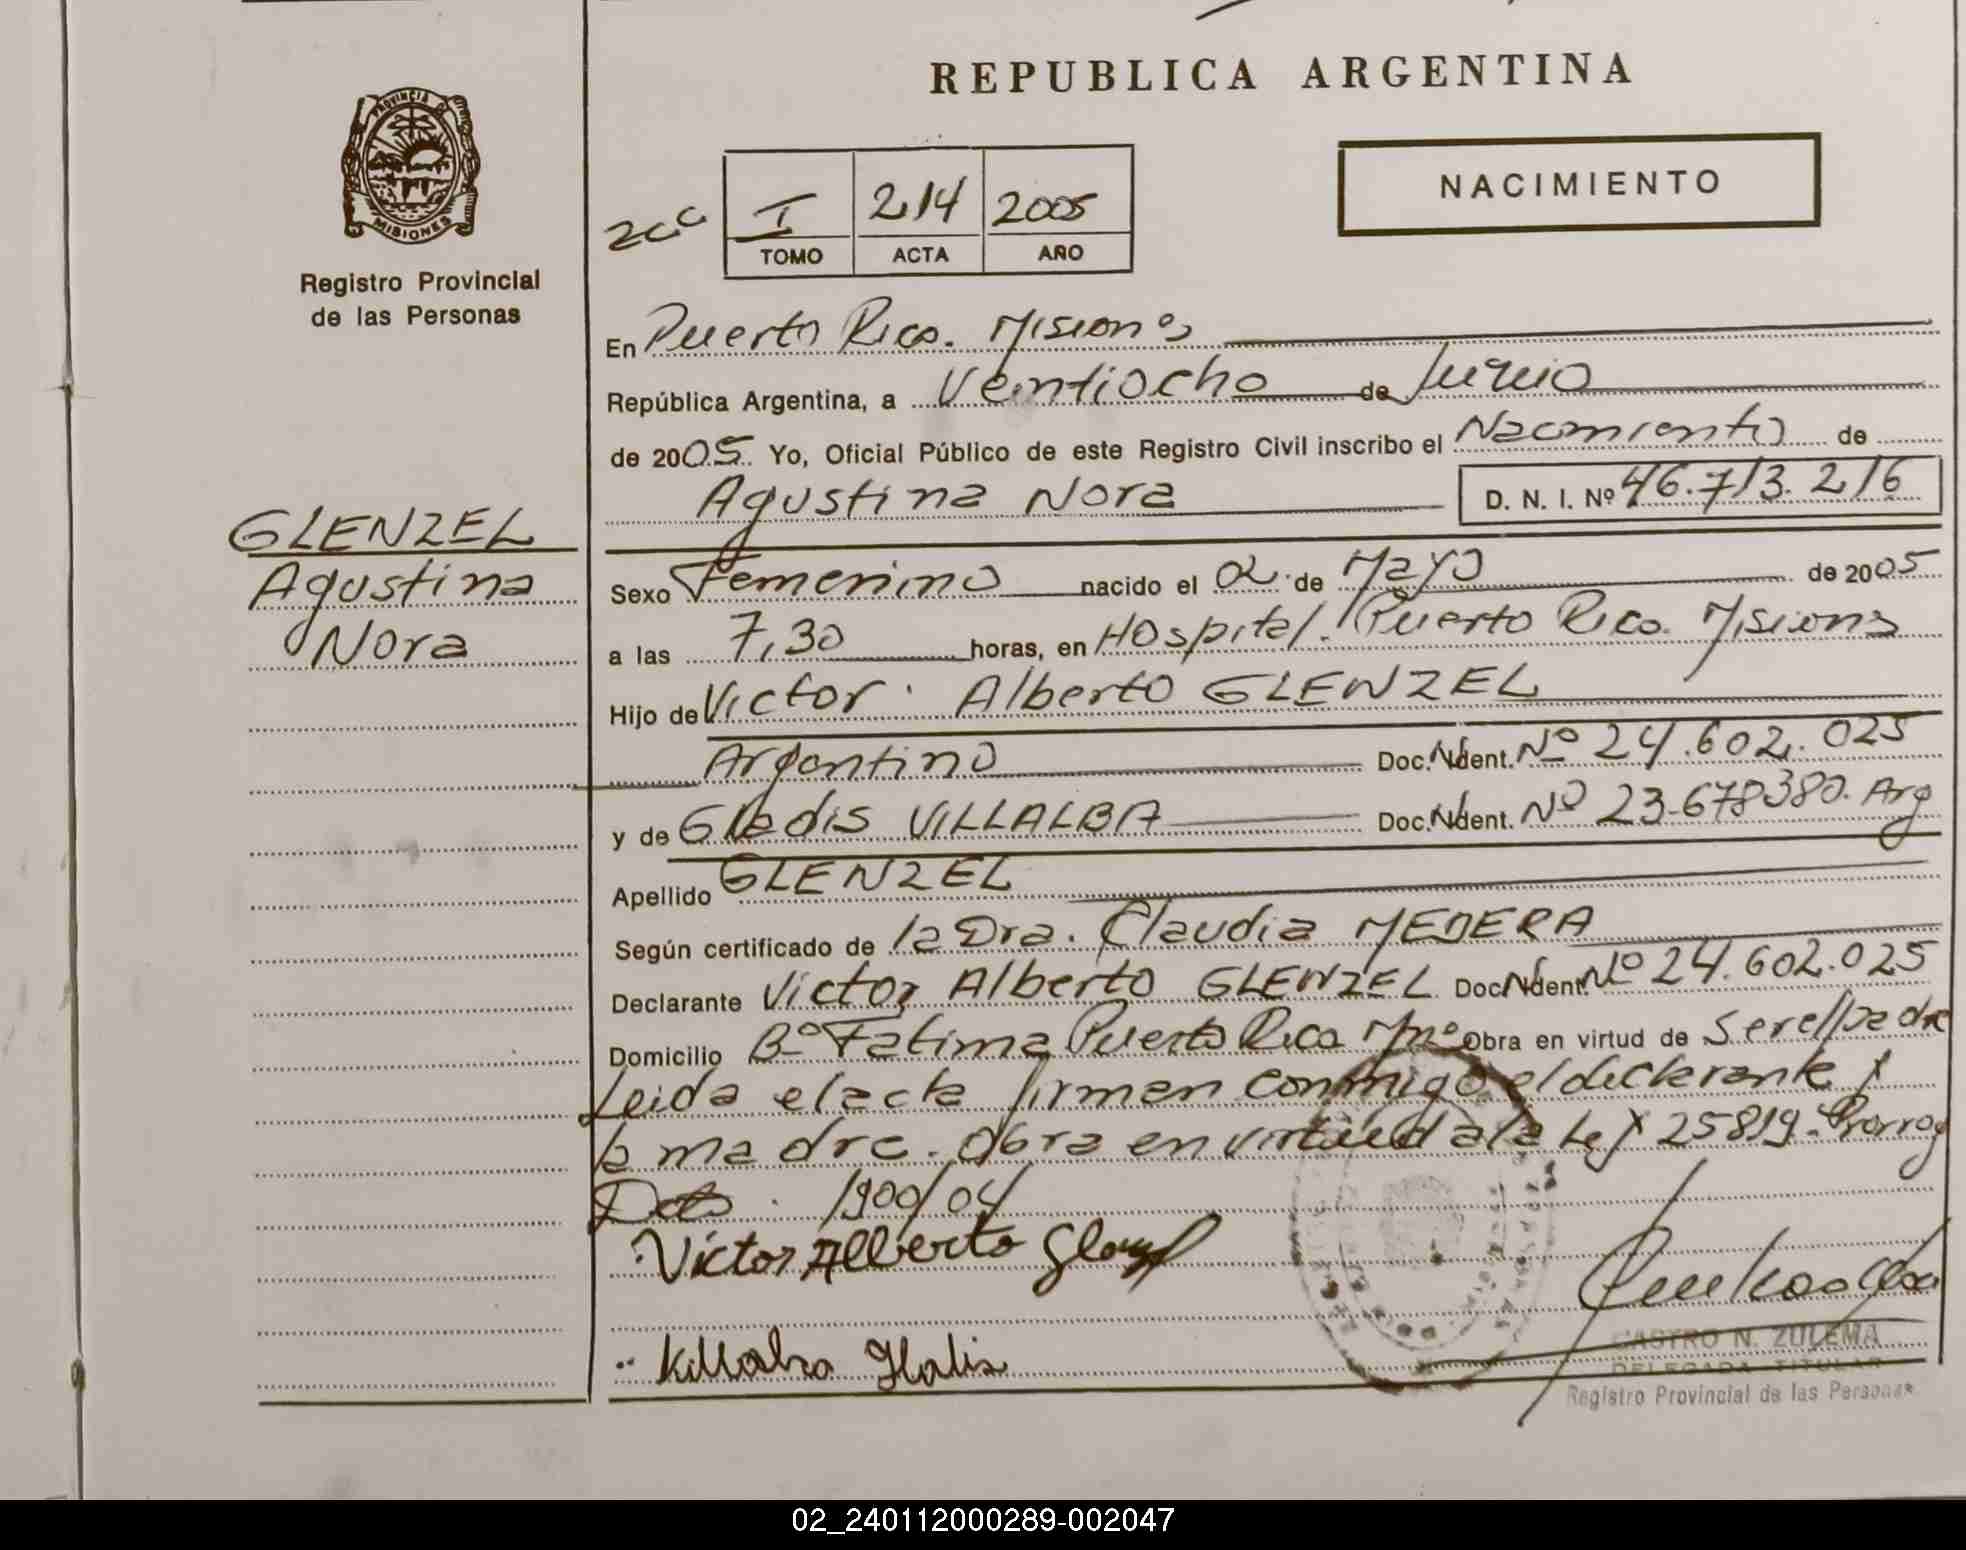 REPUBLICA ARGENTINA
PROVINCIA DE
MISIONES
Registro Provincial
de las Personas
NACIMIENTO
I 214 2005
TOMO ACTA AÑO
En Puerto Rico. Misiones
República Argentina, a Veintiocho de Junio
de 2005 Yo, Oficial Público de este Registro Civil inscribo el Nacimiento de
Agustina Nora D. N. I. Nº 46.713.216
GLENZEL
Agustina
Nora
Sexo Femenino nacido el 02 de Mayo de 2005
a las 7,30 horas, en Hospital. Puerto Rico. Misiones
Hijo de Victor Alberto GLENZEL
Argentino Doc. Ident. Nº 24.602.025
y de Gladis VILLALBA Doc. Ident. Nº 23.678380. Arg
Apellido GLENZEL
Según certificado de la Dra. Claudia MEDERA
Declarante Victor Alberto GLENZEL Doc. Ident. Nº 24.602.025
Domicilio Bº Fatima Puerto Rico Mnes Obra en virtud de Ser el padre
Leida el acta firman conmigo el declarante y
la madre. Obra en virtud a la Ley 25819. Prorrog
1900/04
Victor Alberto
Villalba Gladis
CASTRO N. ZULEMA
DELEGADA TITULAR
Registro Provincial de las Personas
02_240112000289-002047